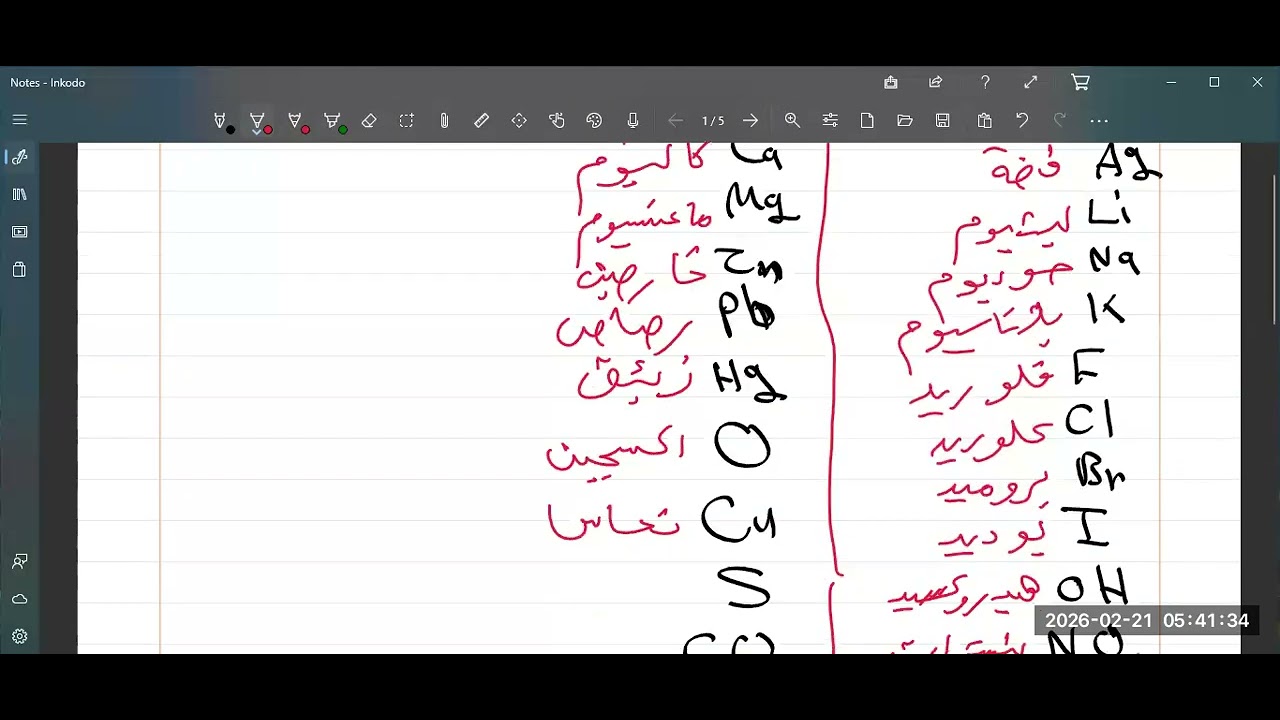 Notes - Inkodo
1/5
فضة Ag
ليثيوم Li
صوديوم Na
بوتاسيوم K
فلوريد F
كلوريد Cl
بروميد Br
يوديد I
هيدروكسيد OH
NO
كالسيوم Ca
ماغنسيوم Mg
خارصين Zn
رصاص Pb
زئبق Hg
اكسجين O
نحاس Cu
S
CO
2026-02-21 05:41:34